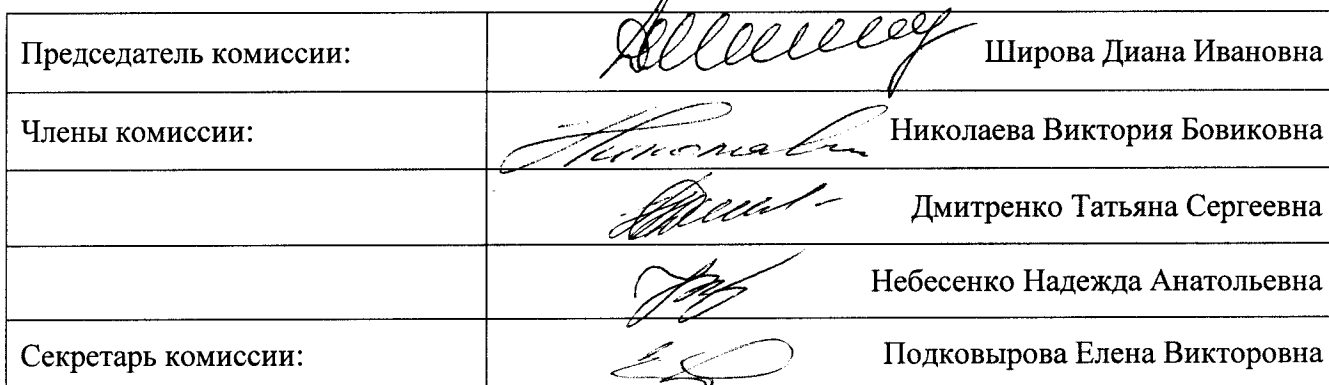 Председатель комиссии: Широва Диана Ивановна
Члены комиссии: Николаева Виктория Бовиковна
Дмитренко Татьяна Сергеевна
Небесенко Надежда Анатольевна
Секретарь комиссии: Подковырова Елена Викторовна